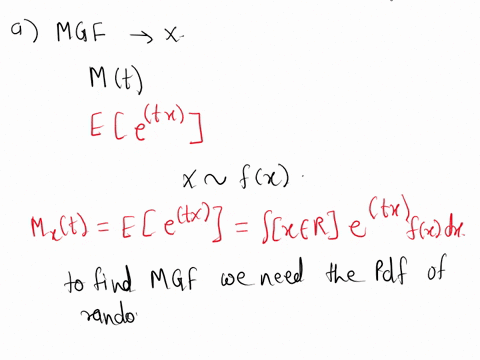 a) MGF → x.
M(t)
E[e^(tx)]
x ~ f(x).
Mx(t) = E[e^(tx)] = ∫[x∈R] e^(tx) f(x)dx.
to find MGF we need the Pdf of
rando